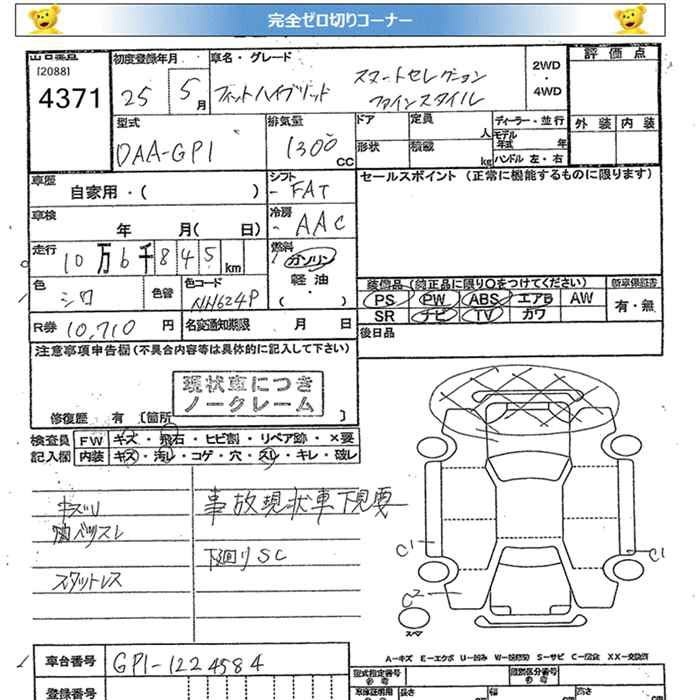 完全ゼロ切りコーナー
出品番号 初度登録年月 車名・グレード 評価点
[2088]
4371 25 5月 フィットハイブリッド スマートセレクション ファインスタイル 2WD・4WD
型式 排気量 ドア 定員 ディーラー・並行 外装 内装
DAA-GP1 1300 CC 人 モデル年式 年
形状 積載 kg ハンドル 左・右
車歴 シフト セールスポイント (正常に機能するものに限ります)
自家用・( ) FAT
車検 冷房
年 月( 日) AAC
走行 燃料
10万6千845km ガソリン
色 色替 色コード 軽油
シロ NH624P ・( )
装備品(純正品に限り○をつけてください) 新車保証書
PS PW ABS エアB AW 有・無
SR ナビ TV カワ
R券 10,710円 名変通知期限 月 日
後日品
注意事項申告欄(不具合内容等は具体的に記入して下さい)
現状車につき
ノークレーム
修復歴 有 [箇所 ]
検査員 FW キズ・飛石・ヒビ割・リペア跡・×要
記入欄 内装 キズ・汚レ・コゲ・穴・スレ・キレ・破レ
キズU
事故現状車下見要
下廻りSC
スタットレス
C1 C1
C2
スペア
A-キズ E-エクボ U-凹み W-補修跡 S-サビ C-腐食 XX-交換済
車台番号 GP1-1224584
登録番号
型式指定番号 類別区分番号
長さ 幅 高さ